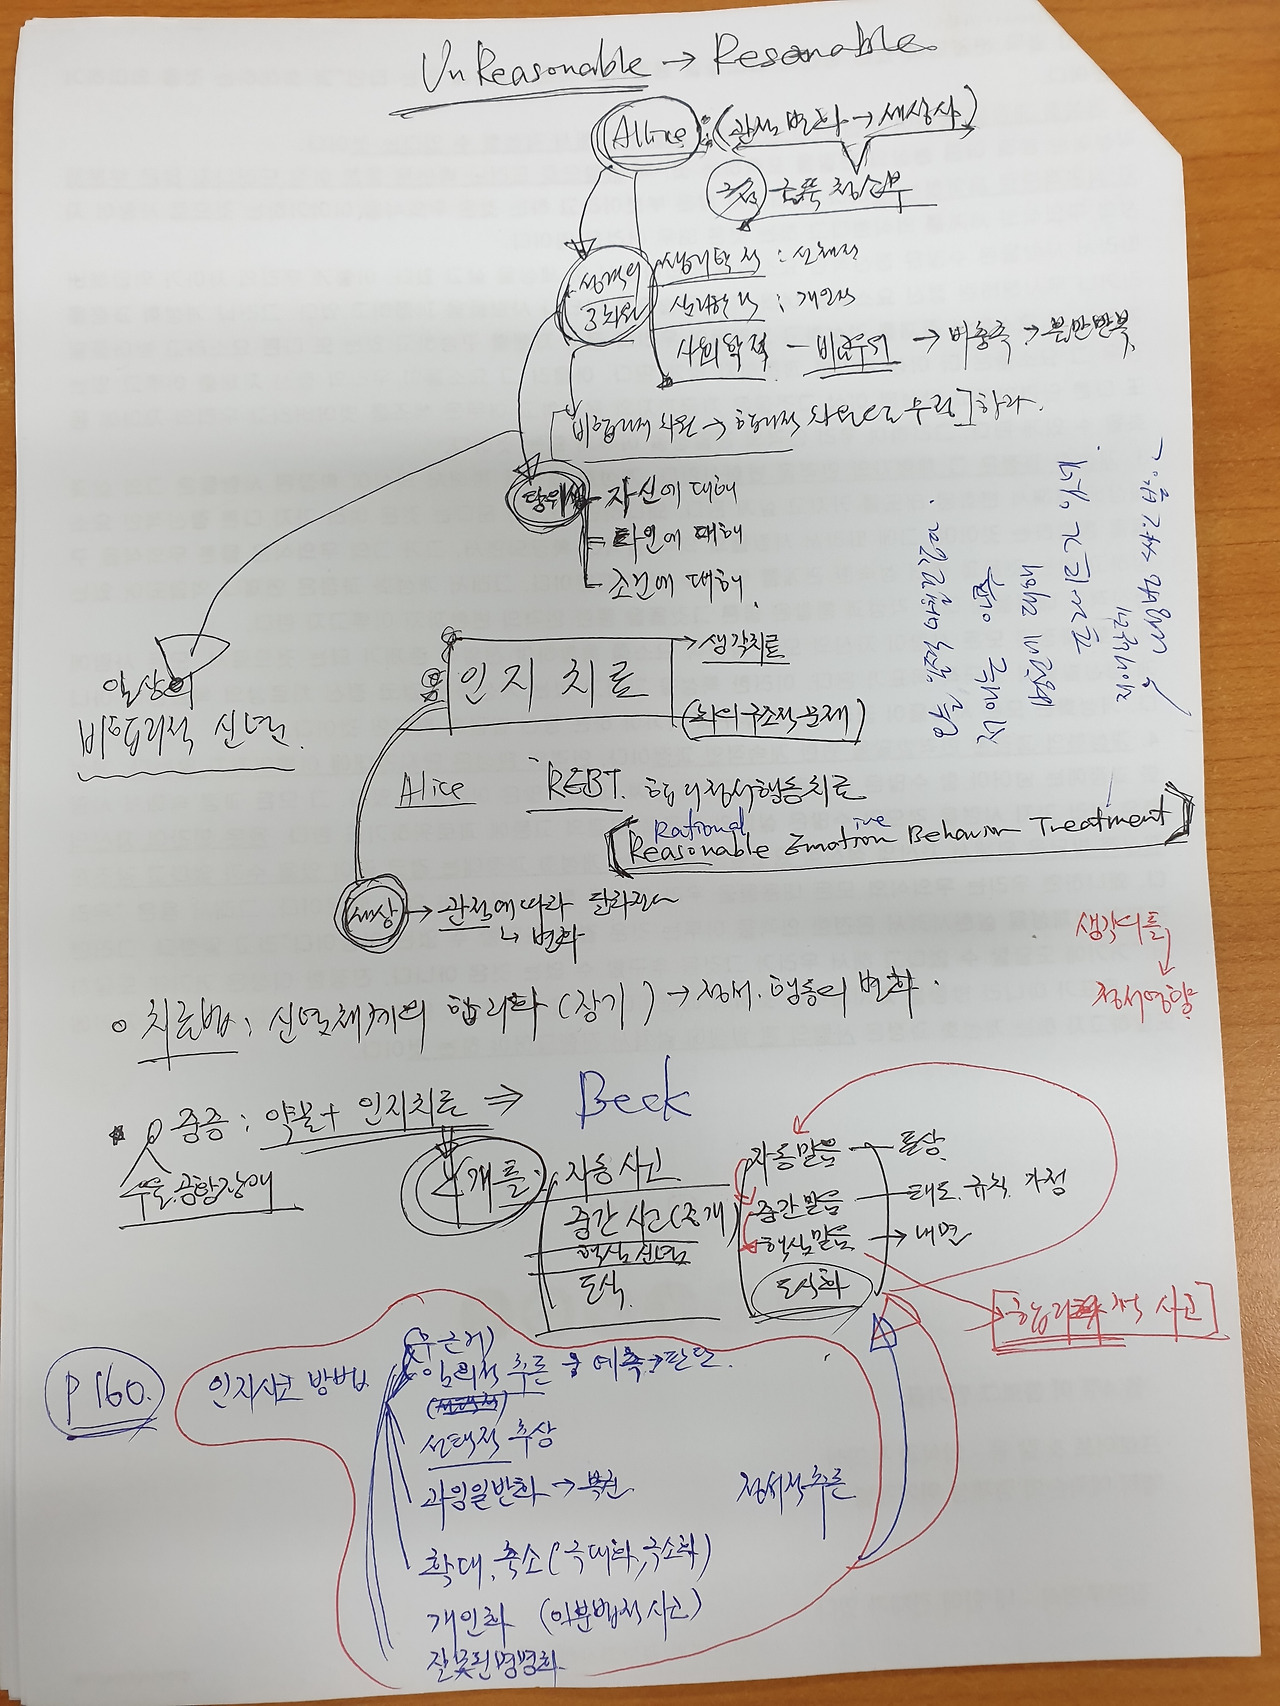 UnReasonable → Resonable
Allice : (관점 변화 → 세상사)
긍쪽 청소부
성격의 생리학적 : 신체적
3차원 심리학적 : 개인의
사회학적 - 비교우위 → 비충족 → 불만반복
비합리적 차원 → 합리적 차원으로 무장] 하라.
당위성 - 자신에 대해
- 타인에 대해
- 조건에 대해
일상의
비합리적 신념.
인지치료 → 생각치료
(하위구조적 문제)
Alice REBT. 합리정서행동치료
Rational ive
[Reasonable Emotion Behavior Treatment]
세상 → 관점에 따라 달라진다
↳ 변화
생각의 틀
↓
정서영향
○ 치료법 : 신념체계의 합리화 (장기) → 정서, 행동의 변화.
중증 : 약물 + 인지치료 ⇒ Beck
우울.공황장애
개틀 : 자동 사고. 자동말음 - 표상.
중간 사고 (중개) 중간말음 - 태도. 규칙. 가정
핵심신념 핵심말음 → 내면
도식. 도식화
[합리적 사고]
P 160. 인지사고 방법
(무근거)
임의적 추론 : 예측 → 판단.
선택적 추상
과잉일반화 → 복권
정서적 추론
확대, 축소 (극대화, 극소화)
개인화 (이분법적 사고)
잘못된 명명화